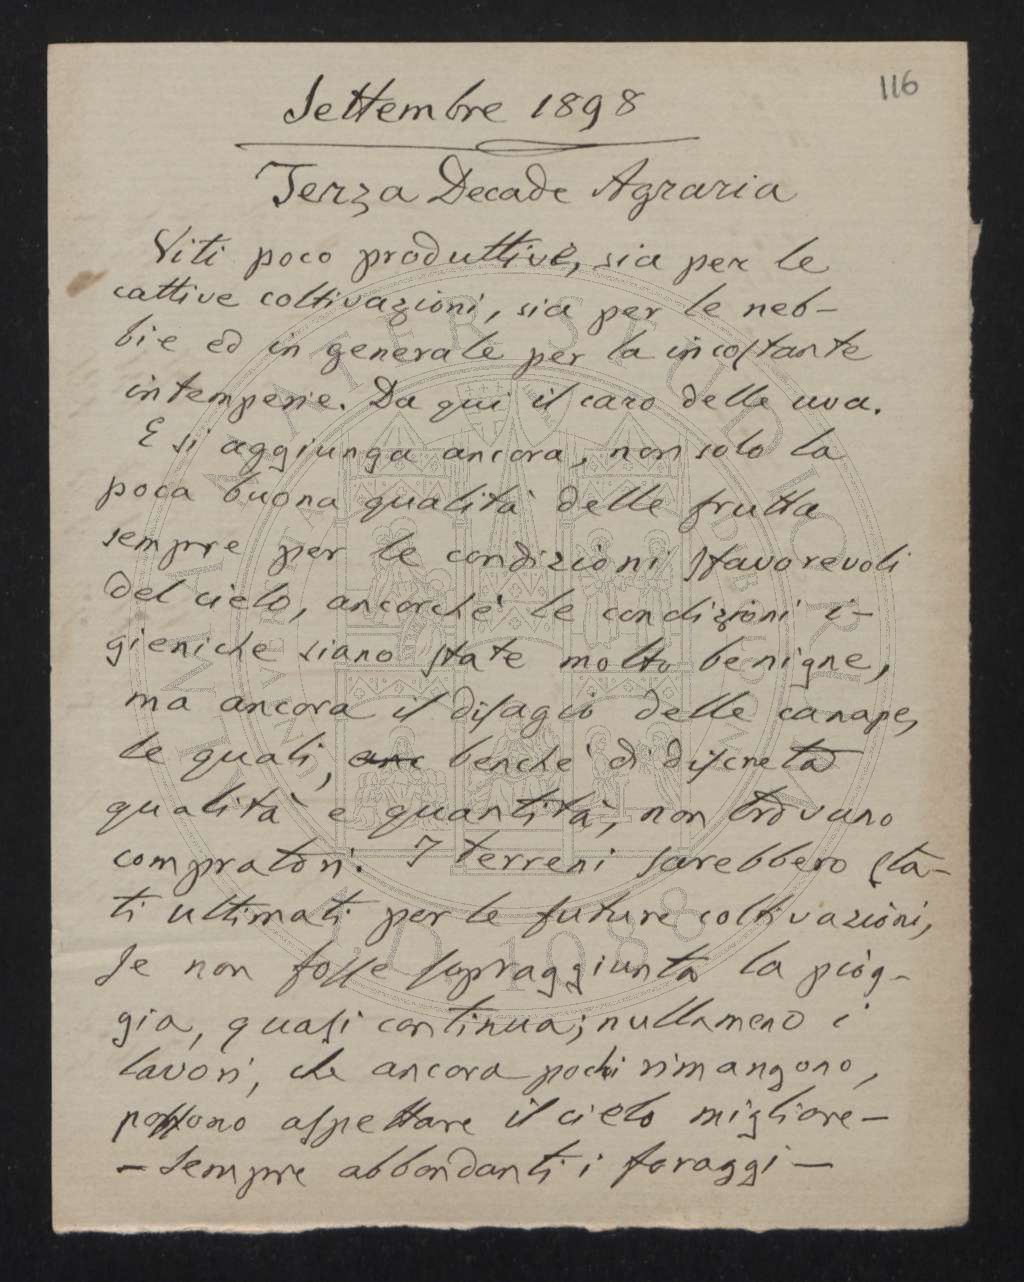 116
Settembre 1898
Terza Decade Agraria
Viti poco produttive, sia per le
cattive coltivazioni, sia per le neb-
bie ed in generale per la incostante
intemperie. Da qui il caro delle uva.
E si aggiunga ancora, non solo la
poca buona qualità delle frutta
sempre per le condizioni sfavorevoli
del cielo, ancorchè le condizioni i-
gieniche siano state molto benigne,
ma ancora il disagio delle canape,
le quali, anc benchè di discreta
qualità e quantità, non trovano
compratori. I terreni sarebbero sta-
ti ultimati per le future coltivazioni,
se non fosse sopraggiunta la piog-
gia, quasi continua; nullameno i
lavori, che ancora pochi rimangono,
possono aspettare il cielo migliore-
- Sempre abbondanti i foraggi -
ALMA MATER STUDIORUM
A.D. 1088